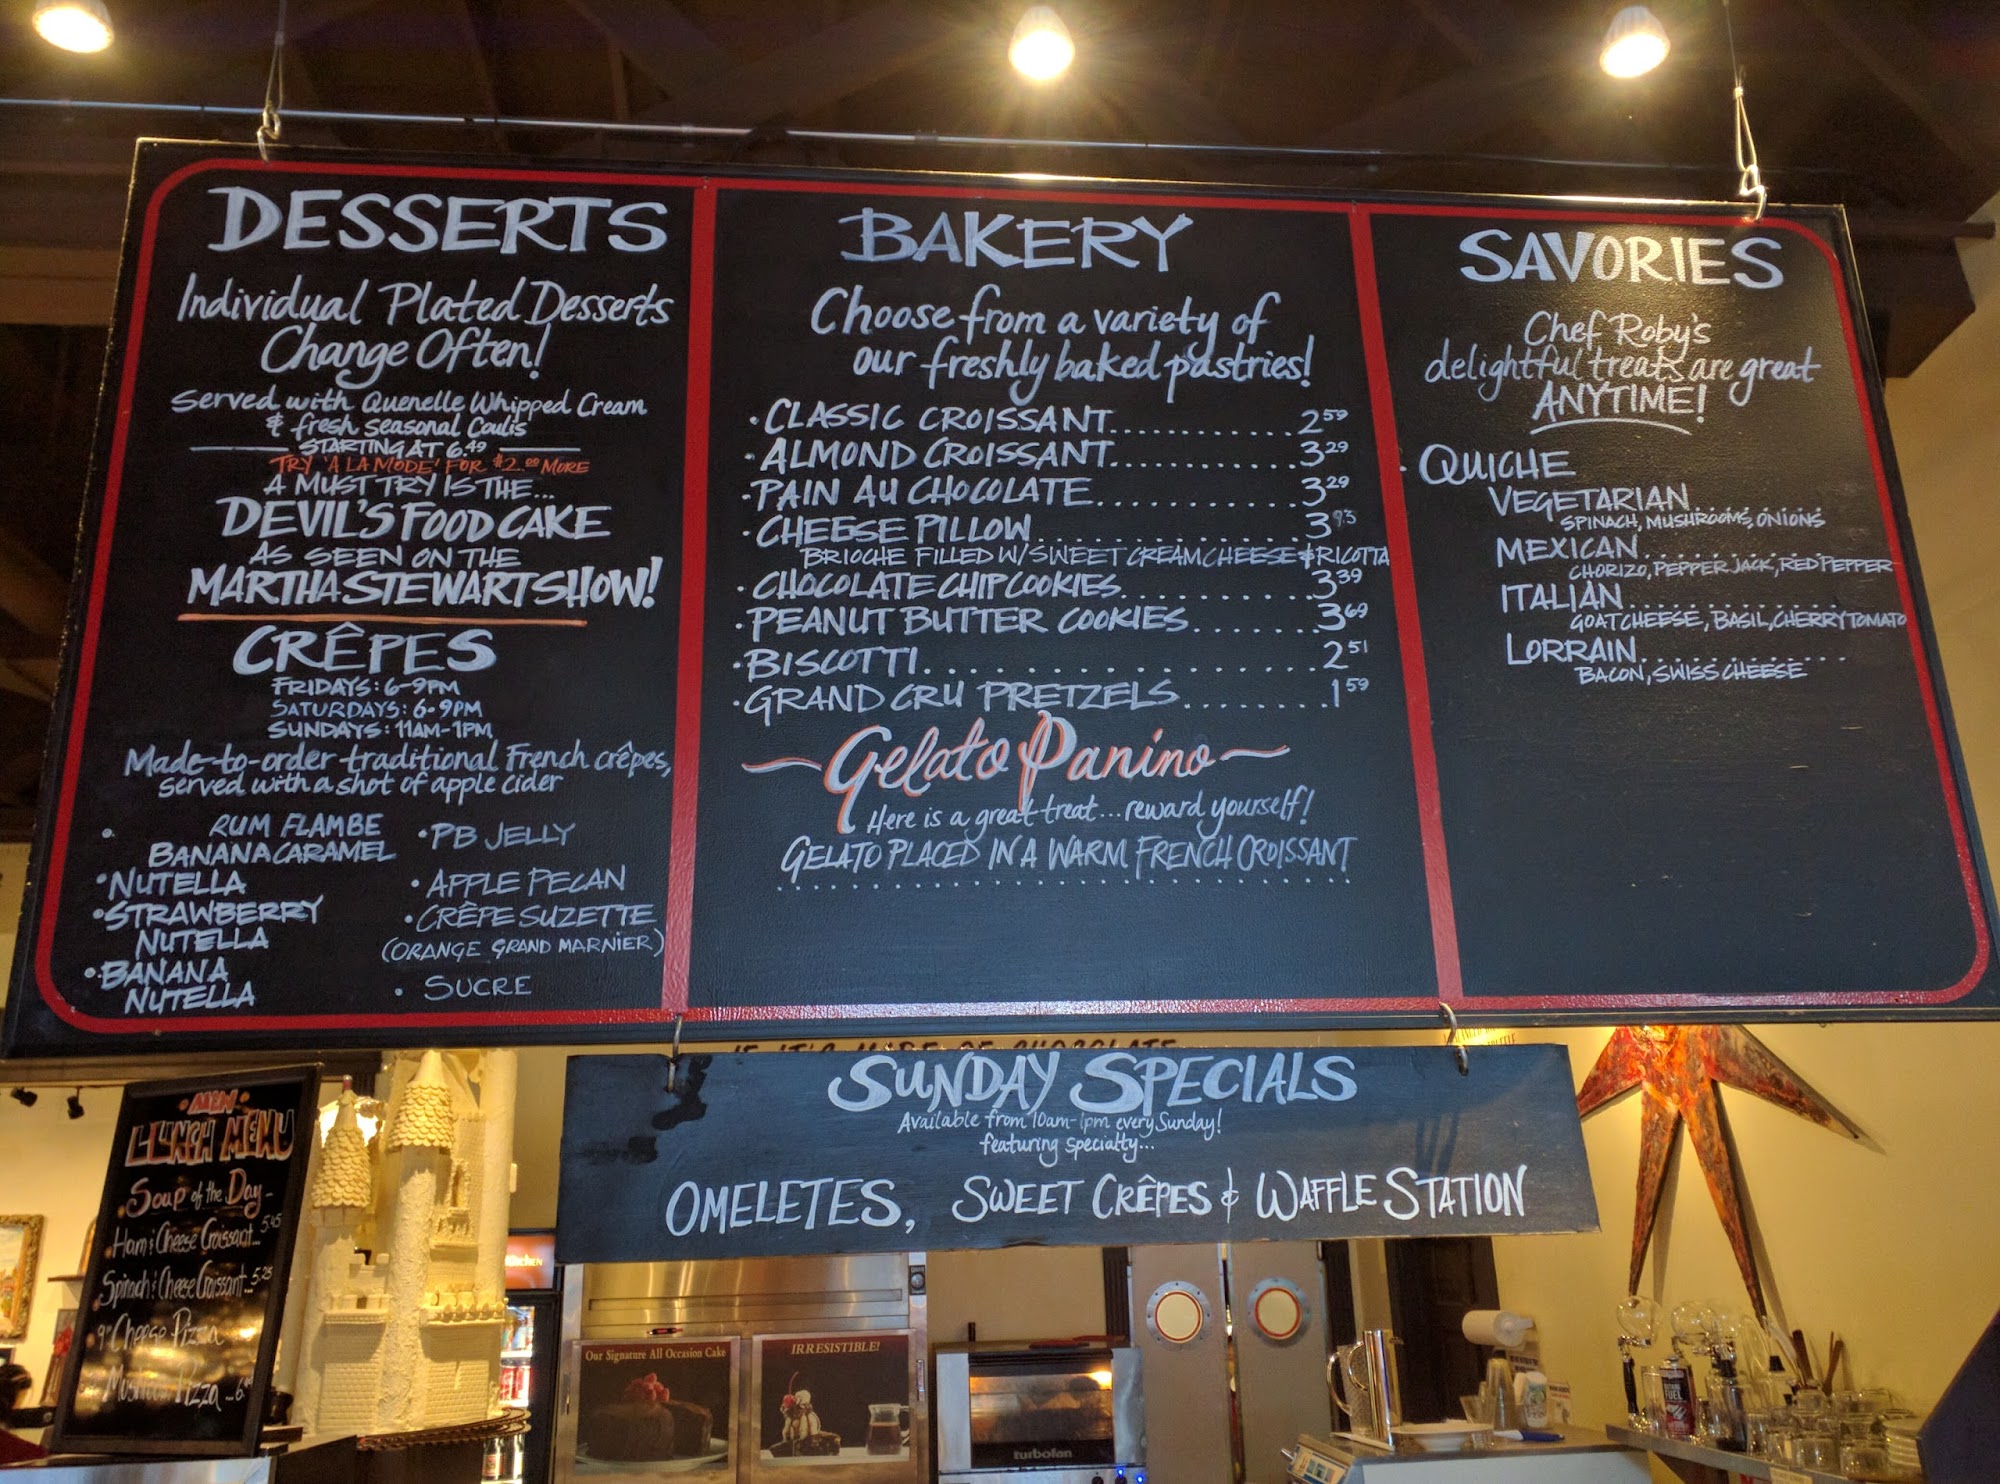 DESSERTS
Individual Plated Desserts
Change Often!
Served with Quenelle Whipped Cream
& fresh seasonal Coulis
STARTING AT 6.49
TRY 'A LA MODE' FOR $2.00 MORE
A MUST TRY IS THE...
DEVIL'S FOOD CAKE
AS SEEN ON THE
MARTHA STEWART SHOW!
CRÊPES
FRIDAYS: 6-9PM
SATURDAYS: 6-9PM
SUNDAYS: 11AM-1PM
Made-to-order traditional French crêpes,
served with a shot of apple cider
• RUM FLAMBE
BANANA CARAMEL
• NUTELLA
• STRAWBERRY
NUTELLA
• BANANA
NUTELLA
• PB JELLY
• APPLE PECAN
• CRÊPE SUZETTE
(ORANGE GRAND MARNIER)
• SUCRE
BAKERY
Choose from a variety of
our freshly baked pastries!
• CLASSIC CROISSANT............2.59
• ALMOND CROISSANT............3.29
• PAIN AU CHOCOLATE............3.29
• CHEESE PILLOW............3.93
BRIOCHE FILLED W/ SWEET CREAM CHEESE & RICOTTA
• CHOCOLATE CHIP COOKIES............3.39
• PEANUT BUTTER COOKIES.......3.69
• BISCOTTI............2.51
• GRAND CRU PRETZELS........1.59
~Gelato Panino~
Here is a great treat...reward yourself!
GELATO PLACED IN A WARM FRENCH CROISSANT
SAVORIES
Chef Roby's
delightful treats are great
ANYTIME!
• QUICHE
VEGETARIAN
SPINACH, MUSHROOMS, ONIONS
MEXICAN............
CHORIZO, PEPPER JACK, RED PEPPER
ITALIAN............
GOAT CHEESE, BASIL, CHERRY TOMATO
LORRAIN............
BACON, SWISS CHEESE
IF IT'S MADE OF CHOCOLATE
SUNDAY SPECIALS
Available from 10am-1pm every Sunday!
featuring specialty...
OMELETES, SWEET CRÊPES & WAFFLE STATION
LUNCH MENU
Soup of the Day -
Ham & Cheese Croissant...5.45
Spinach & Cheese Croissant...5.25
9" Cheese Pizza
Mushroom Pizza...6.
Our Signature All Occasion Cake
IRRESISTIBLE!
turbofan
FUEL